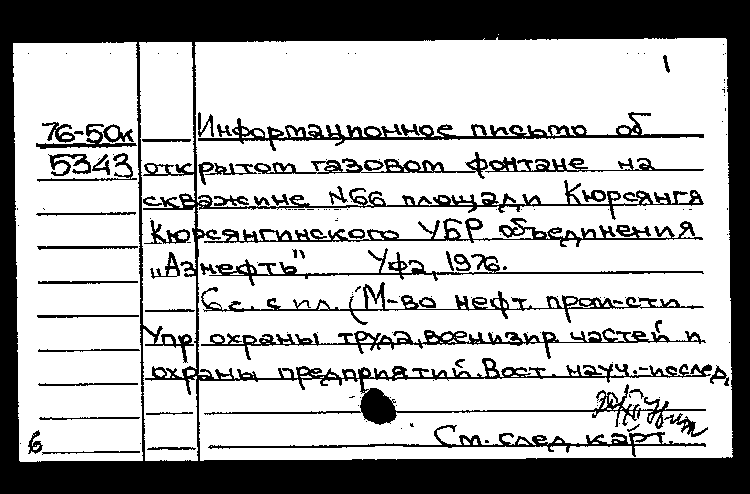 1
76-50к Информационное письмо об
5343 открытом газовом фонтане на
скважине N66 площади Кюрсянгя
Кюрсянгинского УБР объединения
„Азнефть". Уфа, 1976.
6с. с пл. (М-во нефт. пром-сти
Упр охраны труда, военизир частей и
охраны предприятий. Вост. науч.-исслед,
См. след. карт.
б